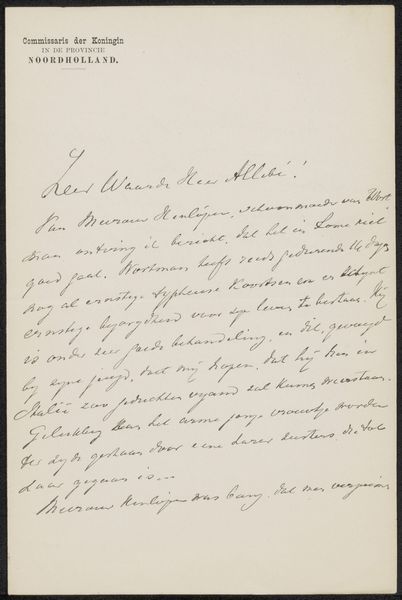 Commissaris der Koningin
IN DE PROVINCIE
NOORDHOLLAND.
Zeer Waarde Heer Allebé!
Van Mevrouw Henlijen, schoonmoeder van Wort
man ontving ik bericht, dat het in Rome niet
goed gaat. Wortman heeft reeds gedurende 14 dagen
nog al ernstige typheuse koortsen en er schijnt
ernstige bezorgdheid voor zijn leven te bestaan. Hij
is onder zeer goede behandeling, en dit, gevoegd
by zyne jeugd, doet mij hopen, dat hij den in
Italië zoo geduchten vyand zal kunnen weerstaan.
Gelukkig kan het arme jonge vrouwtje worden
ter zyde gestaan door eene harer zusters die tot
daar gegaan is...
Mevrouw was bang, dat men